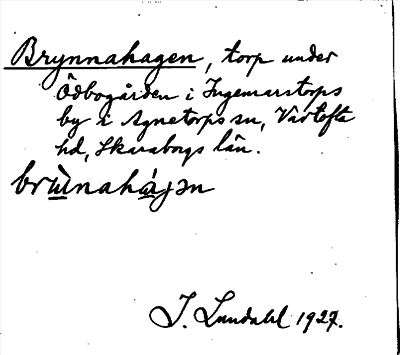 Brynnahagen, torp under
Ödbogården i Ingemarstorps
by i Agnetorps sn, Vartofta
hd, Skaraborgs län.
brùnahájən
I. Lundahl 1927.